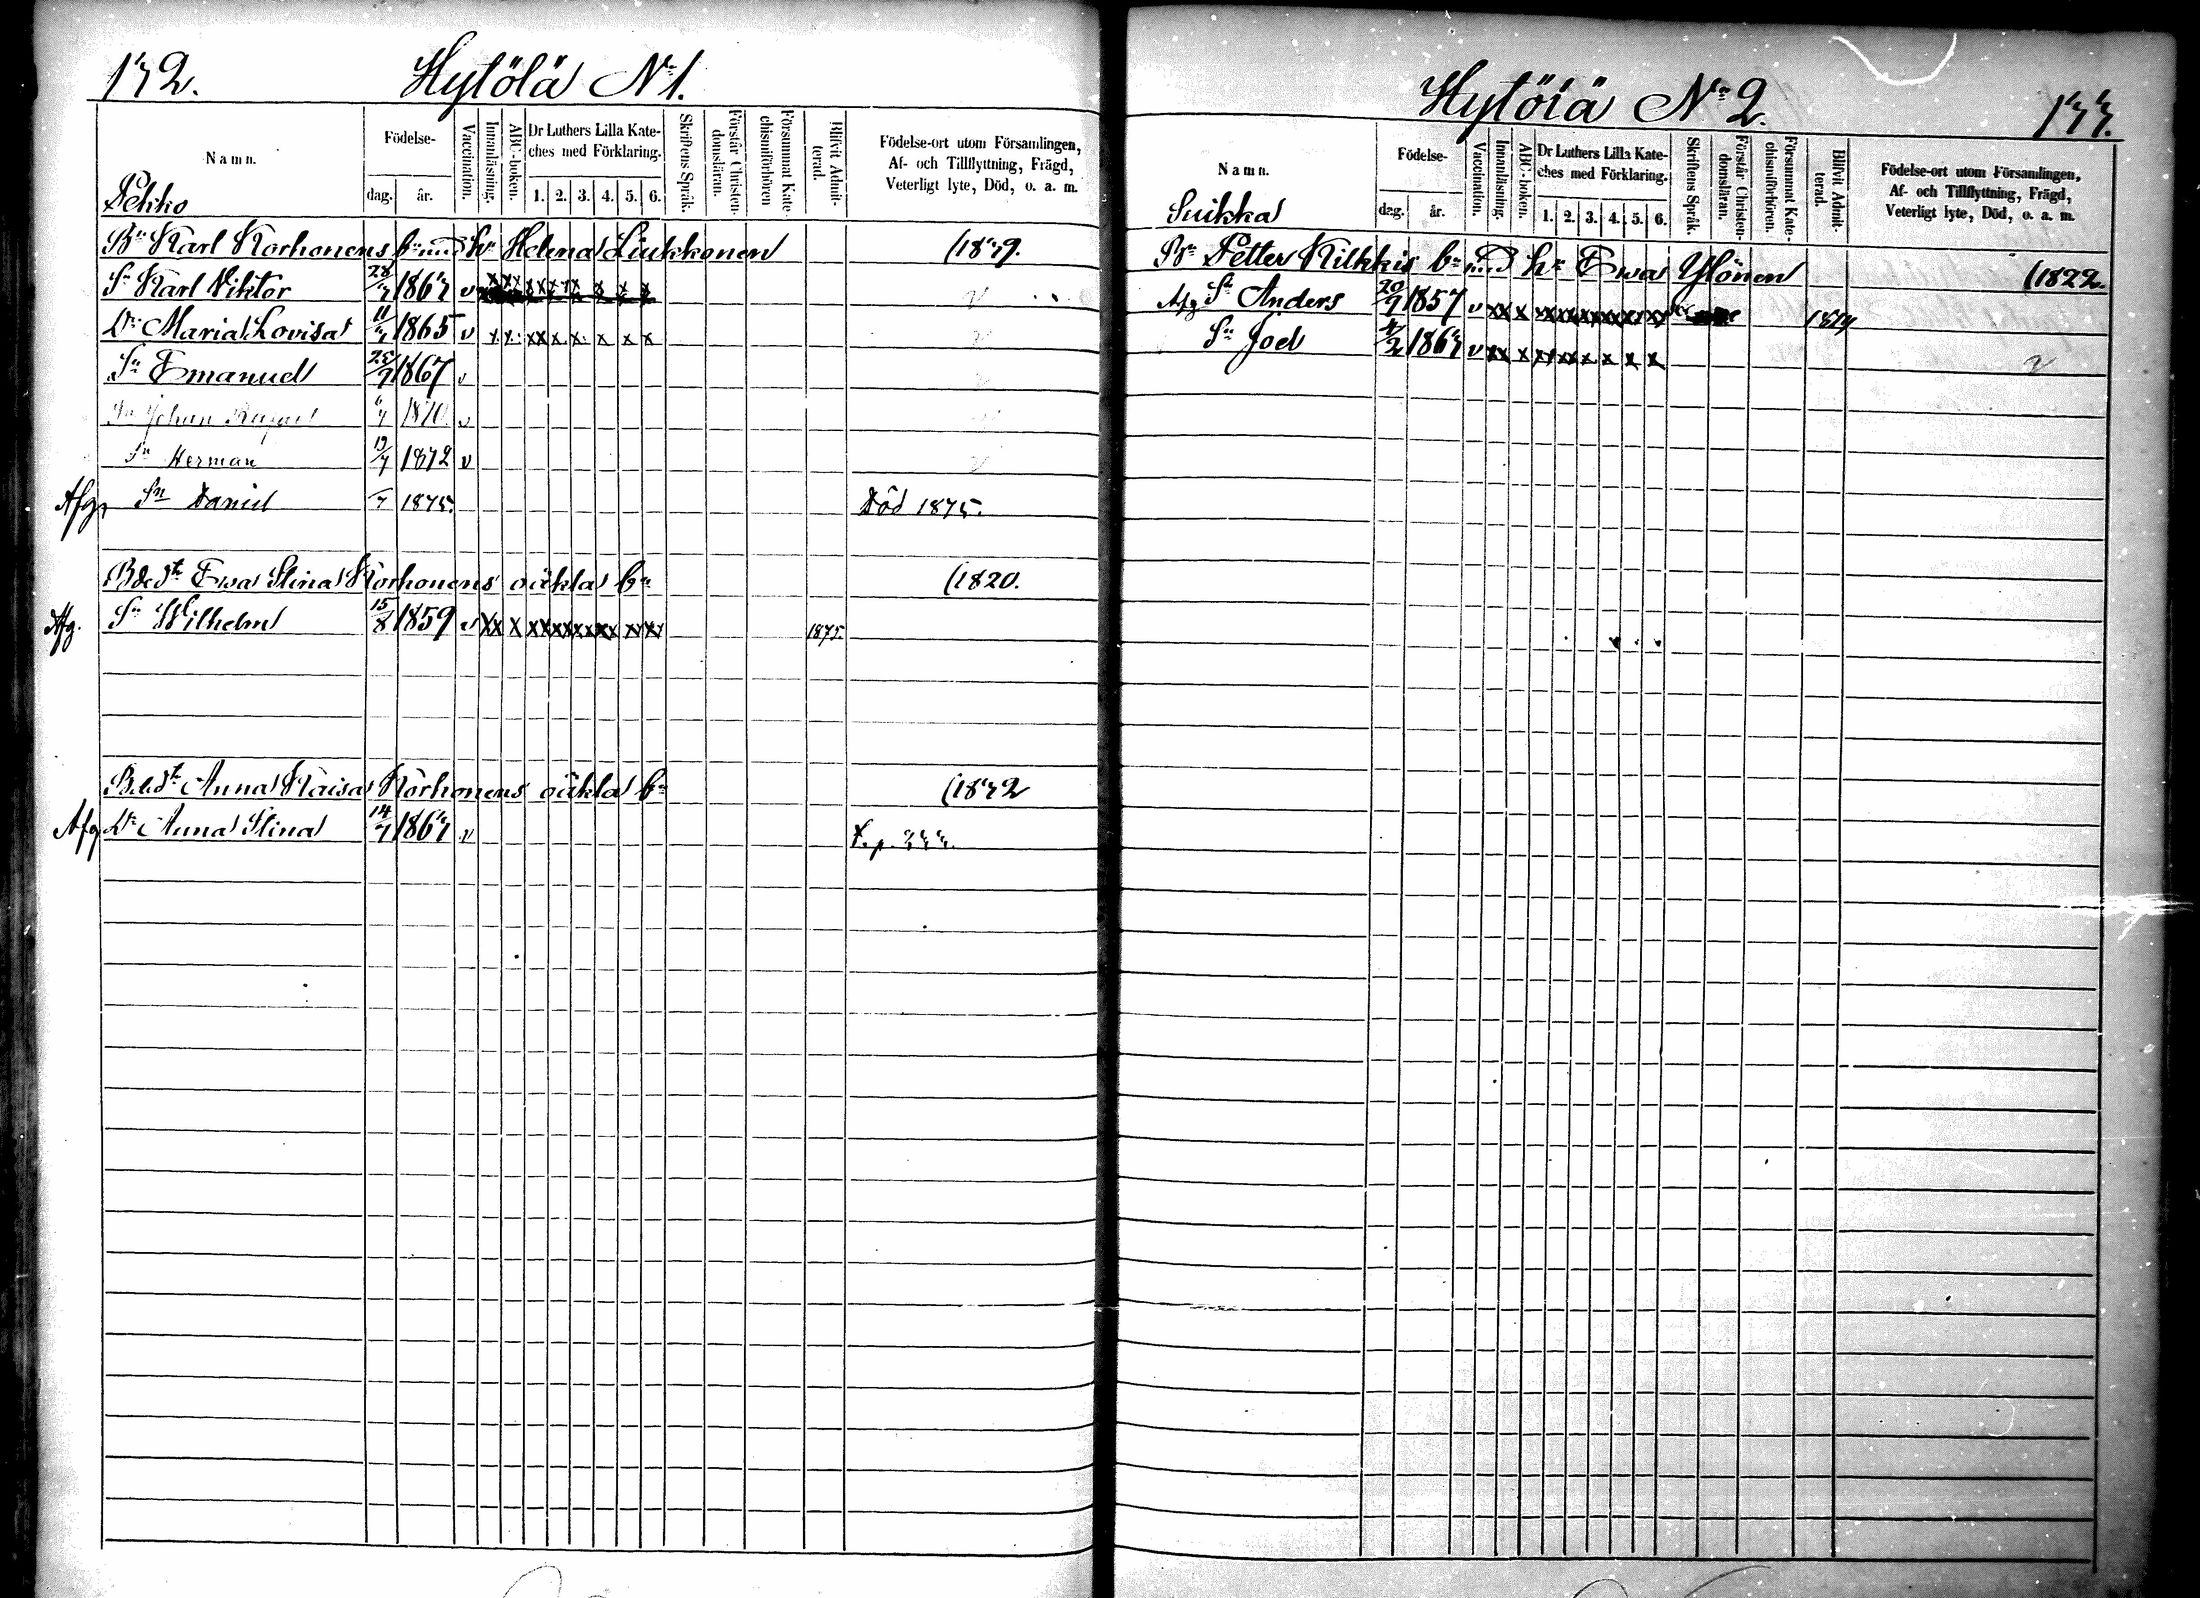 132.
Hytölä No 1.
Namn.
Födelse-
dag.
år.
Vaccination.
Innanläsning.
ABC-boken.
Dr Luthers Lilla Kate-
ches med Förklaring.
1. 2. 3. 4. 5. 6.
Skriftens Språk.
Förstår Christen-
domsläran.
Försummat Kate-
chismiförhören
Blifvit Admit-
terad.
Födelse-ort utom Församlingen,
Af- och Tillflyttning, Frägd,
Veterligt lyte, Död, o. a. m.
Pekko
Bn Karl Korhonens bn med hu Helena Liukkonen (1839.
Sn Karl Viktor 28/3 1863 v
Dr Maria Lovisa 1865 v
Sn Emanuel 25/9 1867 v
Sn Johan 1870 v
Sn Herman 1872 v
Afg. Sn Daniel 1875. Död 1875.
Ewa Stina Korhonens oäkta bn (1820.
Afg. Sn Wilhelm 15/8 1859 v 1875.
Anna Kaisa Korhonens oäkta bn (1832
Afg. Dr Anna Stina 1863 v F. p. 333.
Hytölä No 2.
133.
Namn.
Födelse-
dag.
år.
Vaccination.
Innanläsning.
ABC-boken.
Dr Luthers Lilla Kate-
ches med Förklaring.
1. 2. 3. 4. 5. 6.
Skriftens Språk.
Förstår Christen-
domsläran.
Försummat Kate-
chismiförhören.
Blifvit Admit-
terad.
Födelse-ort utom Församlingen,
Af- och Tillflyttning, Frägd,
Veterligt lyte, Död, o. a. m.
Suikka
Bn Petter Kilkkis bn med hu Ewa Ylönen (1822.
Afg. Sn Anders 20/9 1857 v 1874
Sn Joel 1863 v